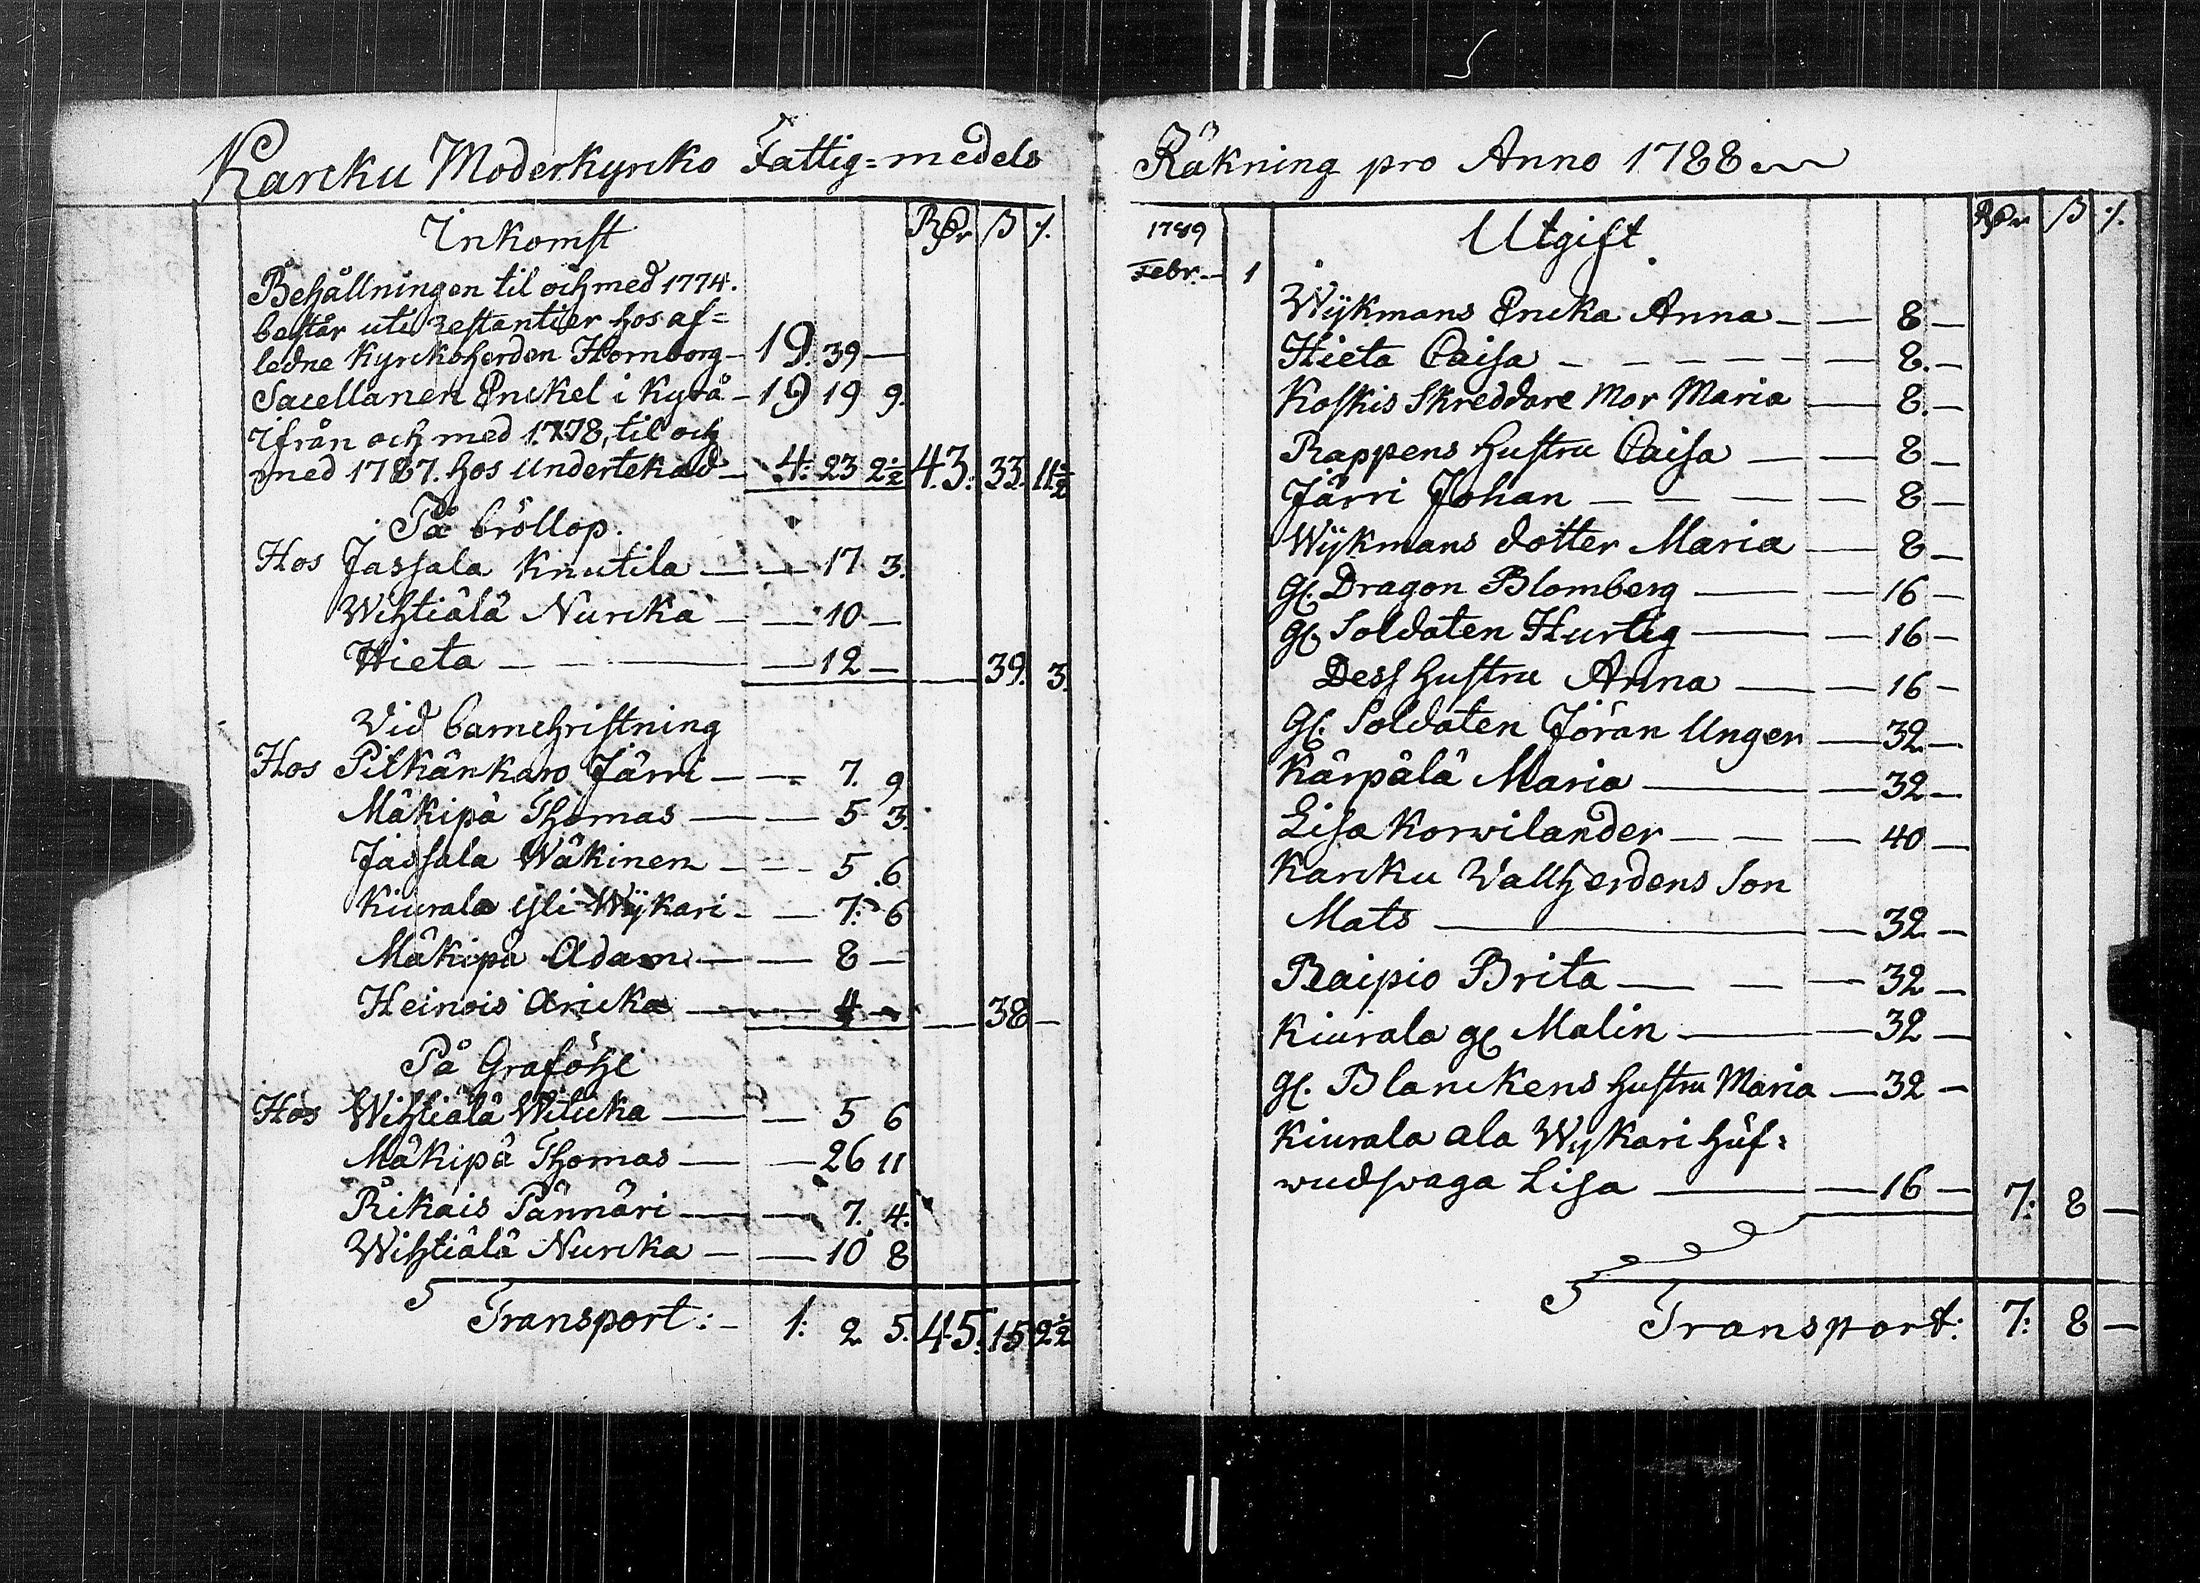 Karcku Moderkyrko Fattig=medels
Inkomst Rdr ß /.
Behållningen til och med 1774.
består uti restantier hos af=
ledne Kyrckoherden Hornborg — 19. 39 —
Sacellanen Enckel i Kyrå — 19 19 9.
Ifrån och med 1778, til och
med 1787. hos undertecknad — 4: 23 2½ 43: 33. 11½
På bröllop.
Hos Jassala Knutila — — 17 3.
Wihtiälä Nurcka — — 10 —
Hieta — — — 12 — — 39. 3.
Vid barnchristning
Hos Pitkänkaro Järri — — 7. 9
Mäkipä Thomas — — 5 3.
Jassala Wäkinen — — 5 .6
Kiurala Yli Wÿkari — — 7: 6
Mäkipä Adam — — 8 —
Heinois Aricka — — 4 — — 38 —
På Graföhl
Hos Wihtiälä — — 5 6
Mäkipä Thomas — — 26 11
Rikais Pännäri — — 7. 4.
Wihtiälä Nurcka — — 10 8
Transport: — 1: 2 5. 45. 15 2½
Räkning pro Anno 1788
1789 Utgift Rdr ß /.
Febr. — 1
Wÿkmans Encka Anna — — 8 —
Hieta Caisa — — — — — 8. —
Koskis Skreddare Mor Maria — 8. —
Rappens hustru Caisa — — 8 —
Järri Johan — — — — 8 —
Wÿkmans dotter Maria — 8 —
gl. Dragon Blomberg — — 16 —
gl. Soldaten Hurtig — — 16 —
Dess hustru Anna — — 16 —
Gl. Soldaten Jöran Unger — 32 —
Kärpälä Maria — — 32 —
Lisa Korwilander — — — 40 —
Karcku Vallherdens Son
Mats — — 32 —
Raipio Brita — — — 32 —
Kiurala gl Malin — — 32 —
gl. Blanckens hustru Maria — 32 —
Kiurala ala Wÿkari huf=
wudswaga Lisa — — 16 — 7: 8 —
Transport: 7: 8 —